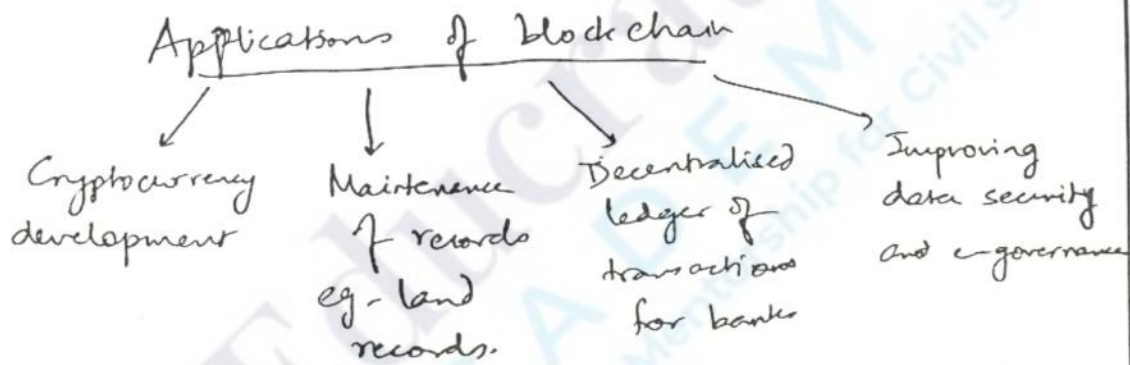 Applications of blockchain
Cryptocurrency
development
Maintenence
of records
eg- land
records.
Decentralised
ledger of
transactions
for banks
Improving
data security
and e-governance
Educra
ADEM
Mentorship for Civil S